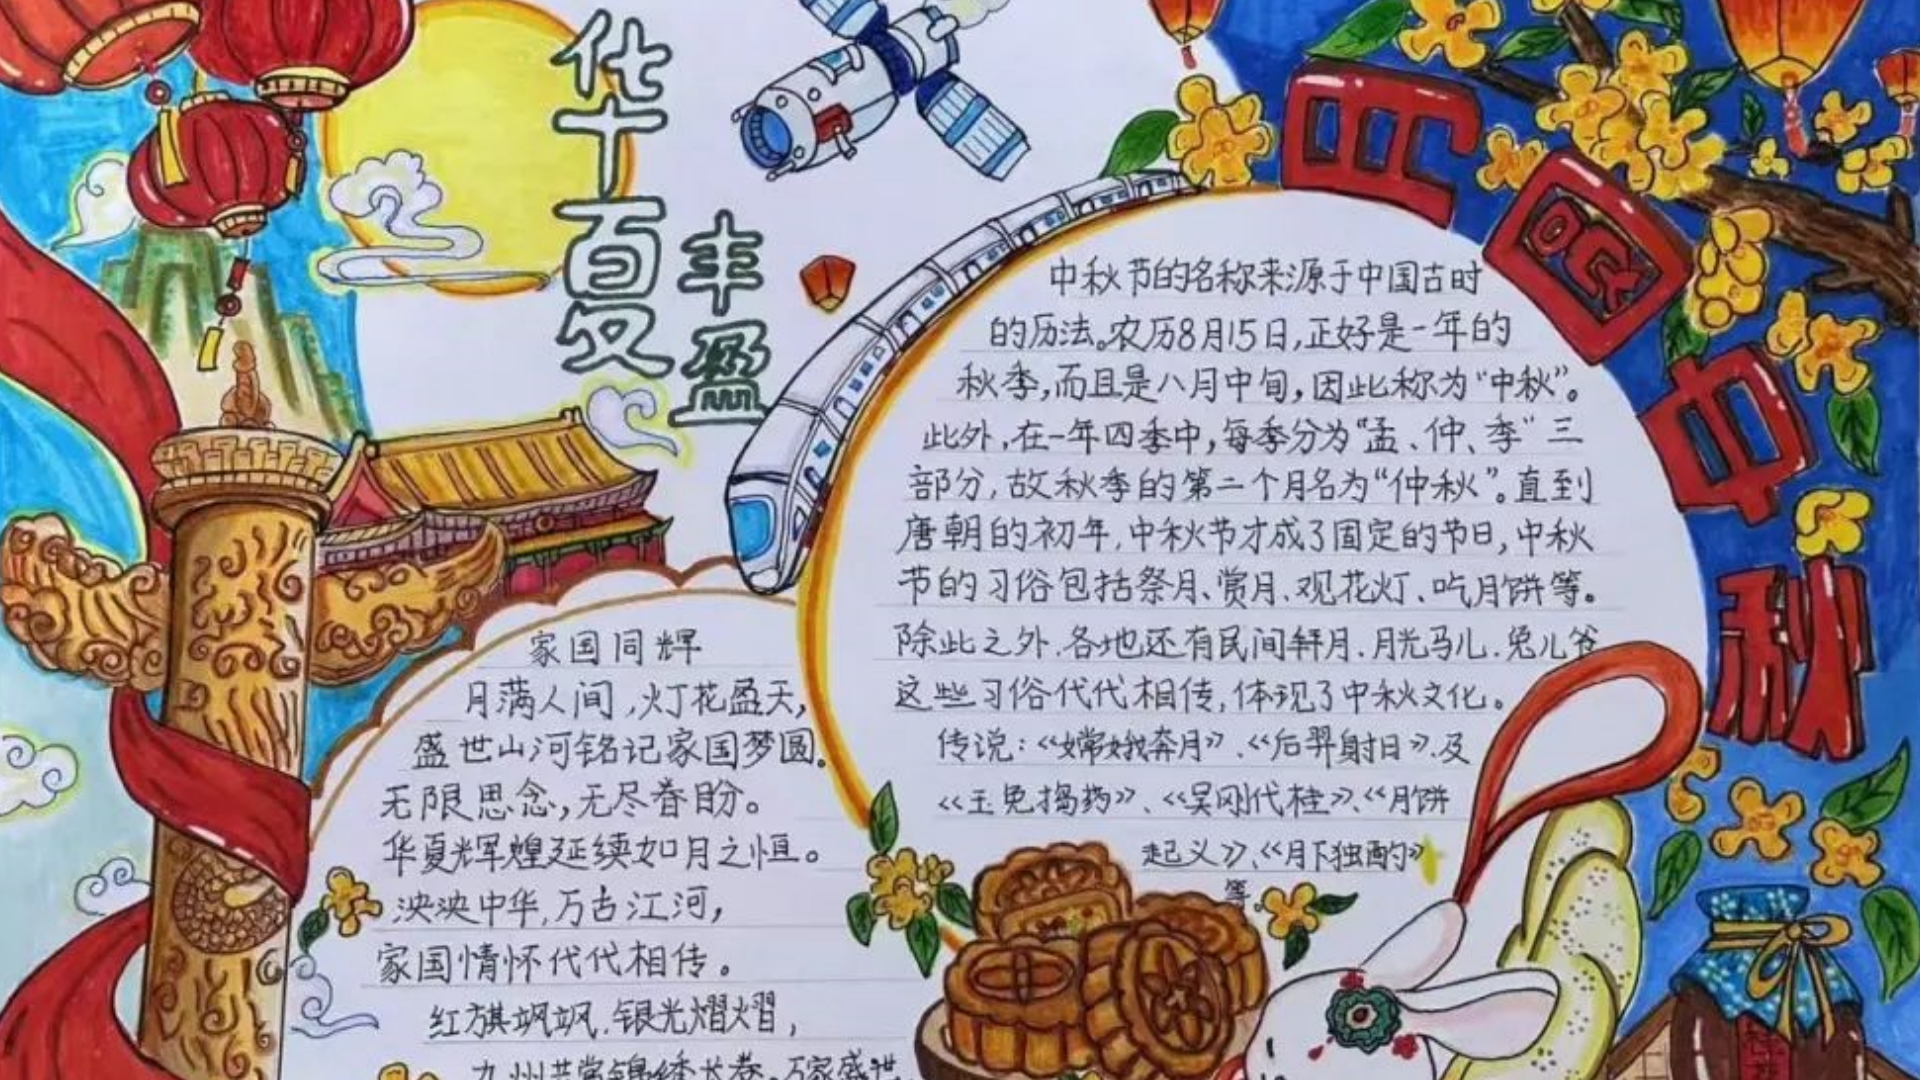 华夏
丰盈
月圆中秋
中秋节的名称来源于中国古时
的历法。农历8月15日,正好是一年的
秋季,而且是八月中旬,因此称为“中秋”。
此外,在一年四季中,每季分为“孟、仲、季”三
部分,故秋季的第二个月名为“仲秋”。直到
唐朝的初年,中秋节才成了固定的节日,中秋
节的习俗包括祭月、赏月、观花灯、吃月饼等。
除此之外,各地还有民间拜月、月光马儿、兔儿爷
这些习俗代代相传,体现了中秋文化。
传说:《嫦娥奔月》、《后羿射日》及
《玉兔捣药》、《吴刚伐桂》、《月饼
起义》、《月下独酌》
等。
家国同辉
月满人间,灯花盈天,
盛世山河铭记家国梦圆.
无限思念,无尽眷盼。
华夏辉煌延续如月之恒。
泱泱中华,万古江河,
家国情怀代代相传。
红旗飒飒,银光熠熠,
九州共赏锦绣长卷。万家盛世